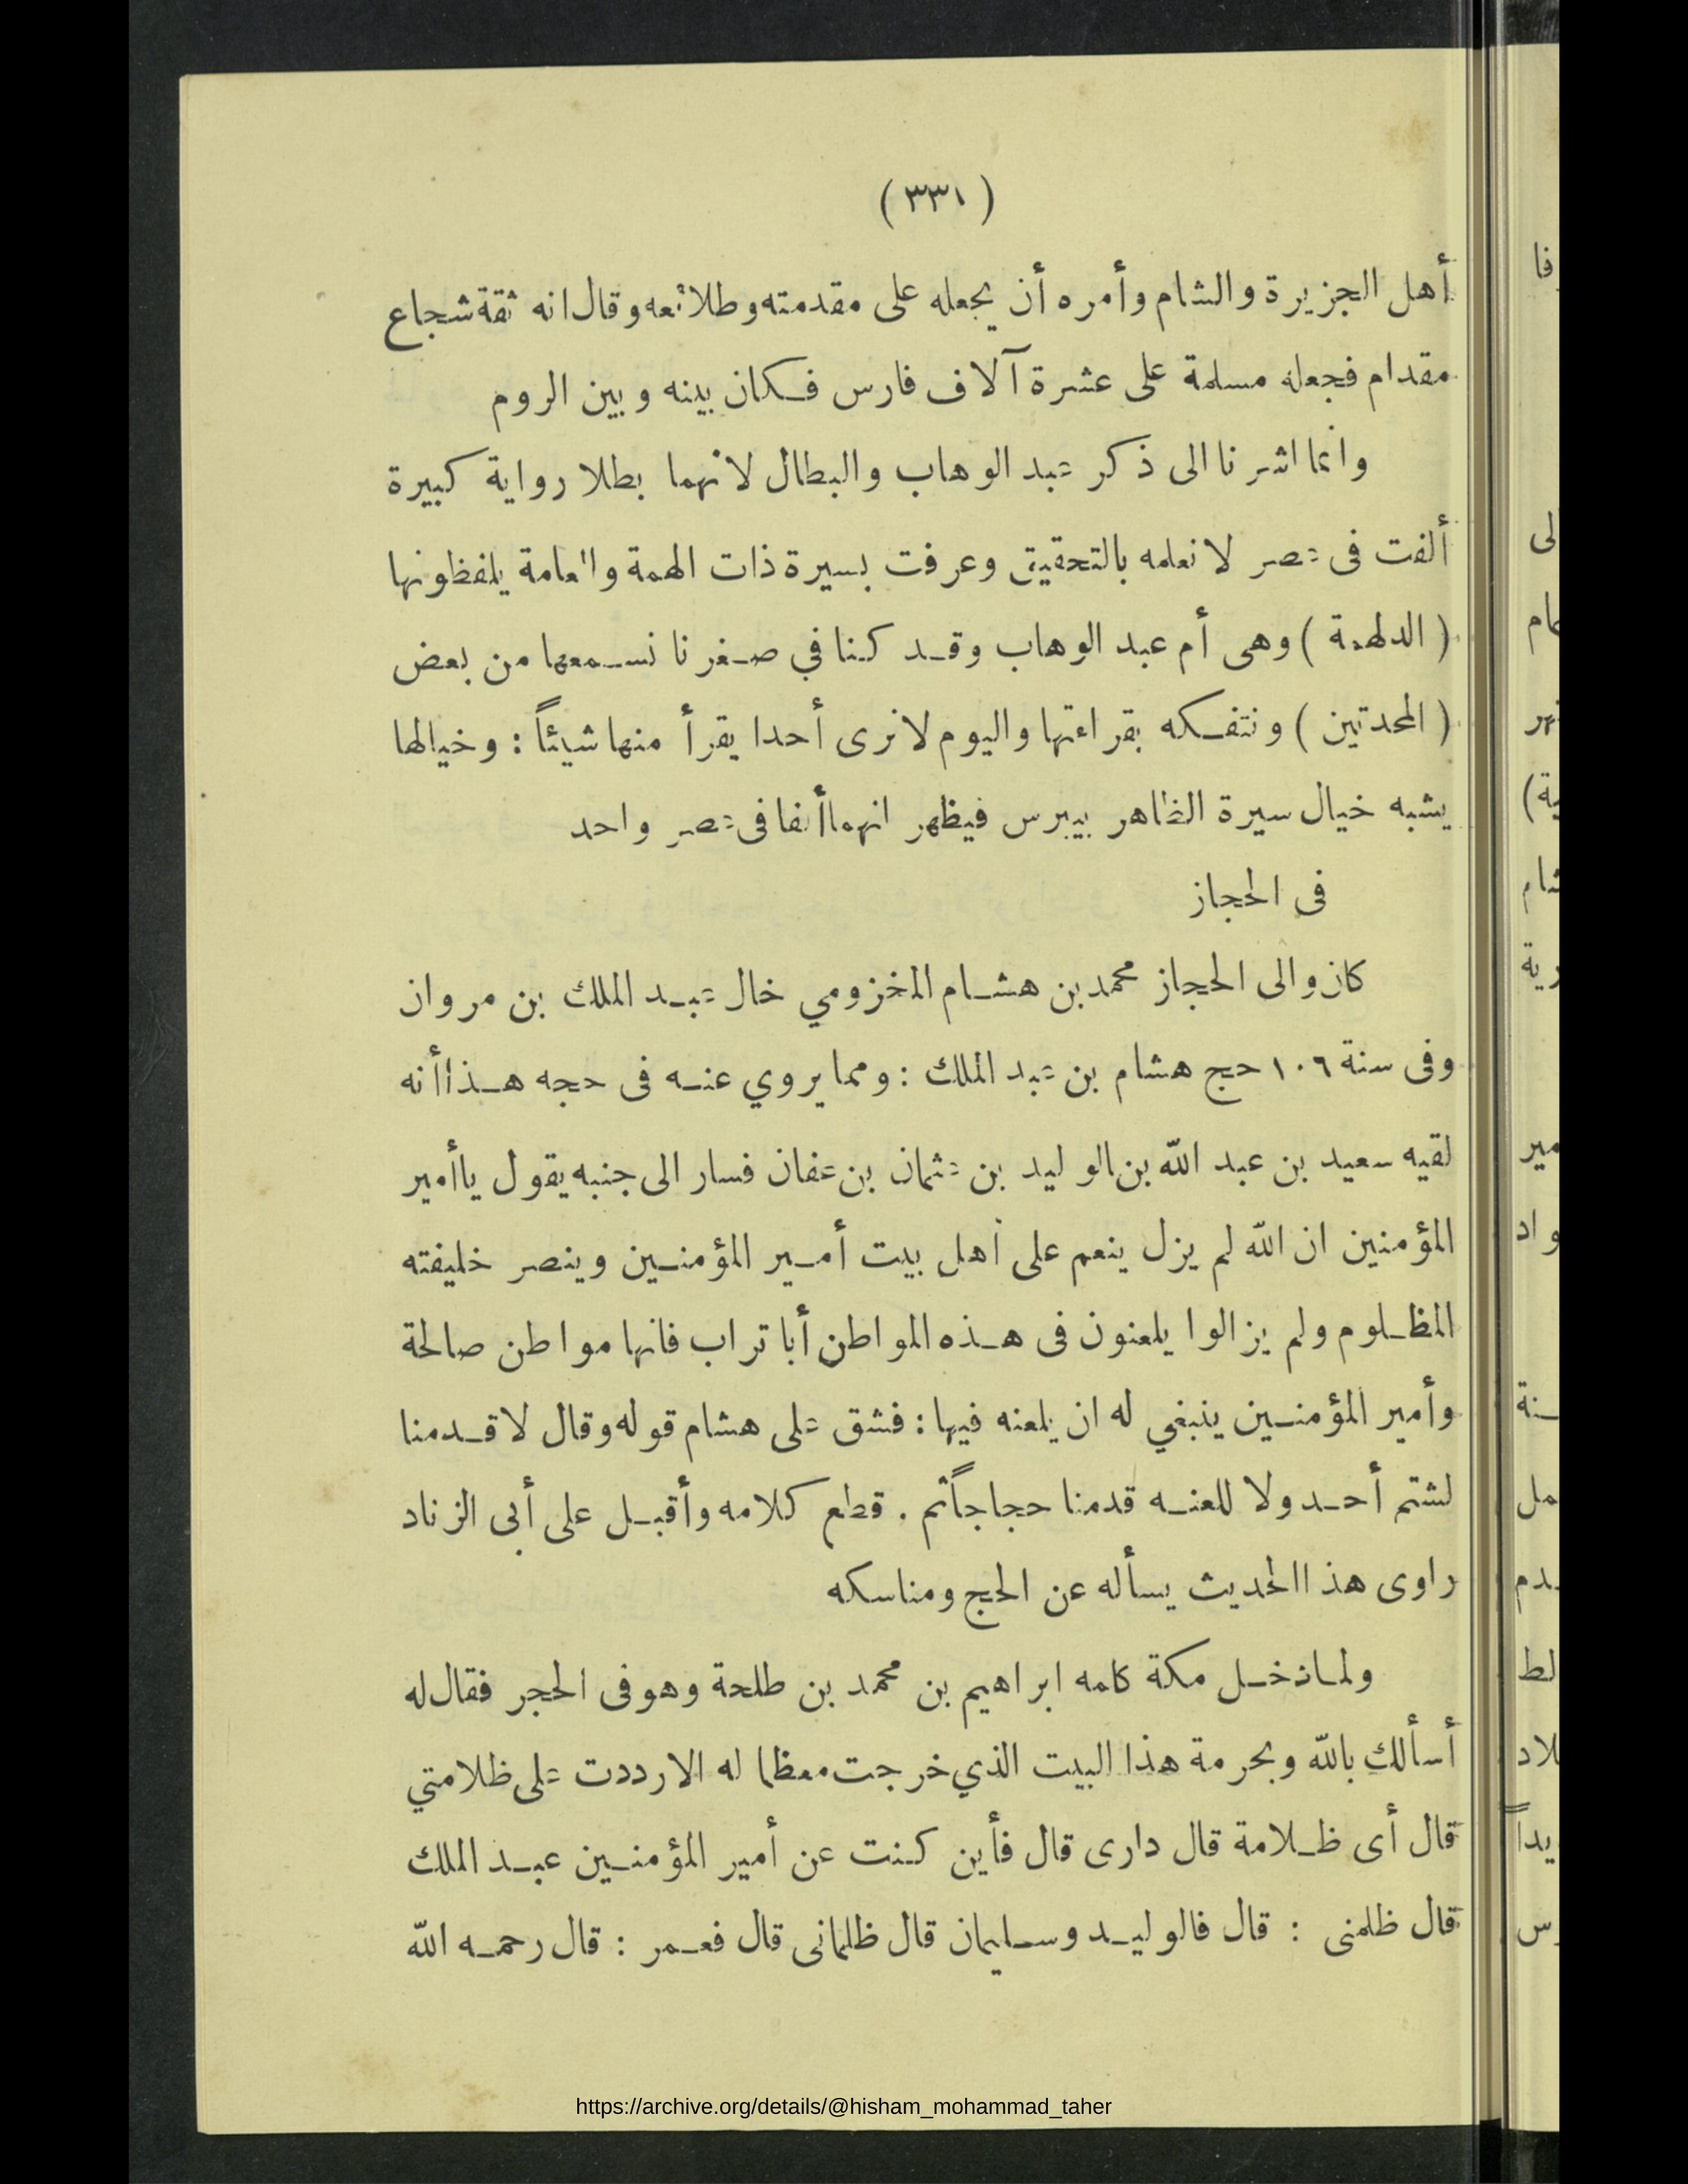 (٣٣١)
أهل الجزيرة والشام وأمره أن يجعله على مقدمته وطلائعه وقال انه ثقة شجاع
مقدام فجعله مسلمة على عشرة آلاف فارس فكان بينه وبين الروم
وانما اشرنا الى ذكر عبد الوهاب والبطال لانهما بطلا رواية كبيرة
ألفت فى عصر لا نعلمه بالتحقيق وعرفت بسيرة ذات الهمة والعامة يلفظونها
(الدلهمة) وهى أم عبد الوهاب وقد كنا في صغرنا نسمعها من بعض
(المحدثين) ونتفكه بقراءتها واليوم لا نرى أحدا يقرأ منها شيئاً : وخيالها
يشبه خيال سيرة الظاهر بيبرس فيظهر انهما ألفا فى عصر واحد
فى الحجاز
كان والى الحجاز محمد بن هشام المخزومي خال عبد الملك بن مروان
وفى سنة ١٠٦ حج هشام بن عبد الملك : ومما يروي عنه فى حجه هذا أنه
لقيه سعيد بن عبد الله بن الوليد بن عثمان بن عفان فسار الى جنبه يقول يا أمير
المؤمنين ان الله لم يزل ينعم على أهل بيت أمير المؤمنين وينصر خليفته
المظلوم ولم يزالوا يلعنون فى هذه المواطن أبا تراب فانها مواطن صالحة
وأمير المؤمنين ينبغي له ان يلعنه فيها : فشق على هشام قوله وقال لا قدمنا
لشتم أحد ولا للعنه قدمنا حجاجاً ثم . قطع كلامه وأقبل على أبى الزناد
راوى هذا الحديث يسأله عن الحج ومناسكه
ولما دخل مكة كلمه ابراهيم بن محمد بن طلحة وهو فى الحجر فقال له
أسألك بالله وبحرمة هذا البيت الذي خرجت معظما له الا رددت على ظلامتي
قال أى ظلامة قال دارى قال فأين كنت عن أمير المؤمنين عبد الملك
قال ظلمنى : قال فالوليد وسليمان قال ظلمانى قال فعمر : قال رحمه الله
https://archive.org/details/@hisham_mohammad_taher